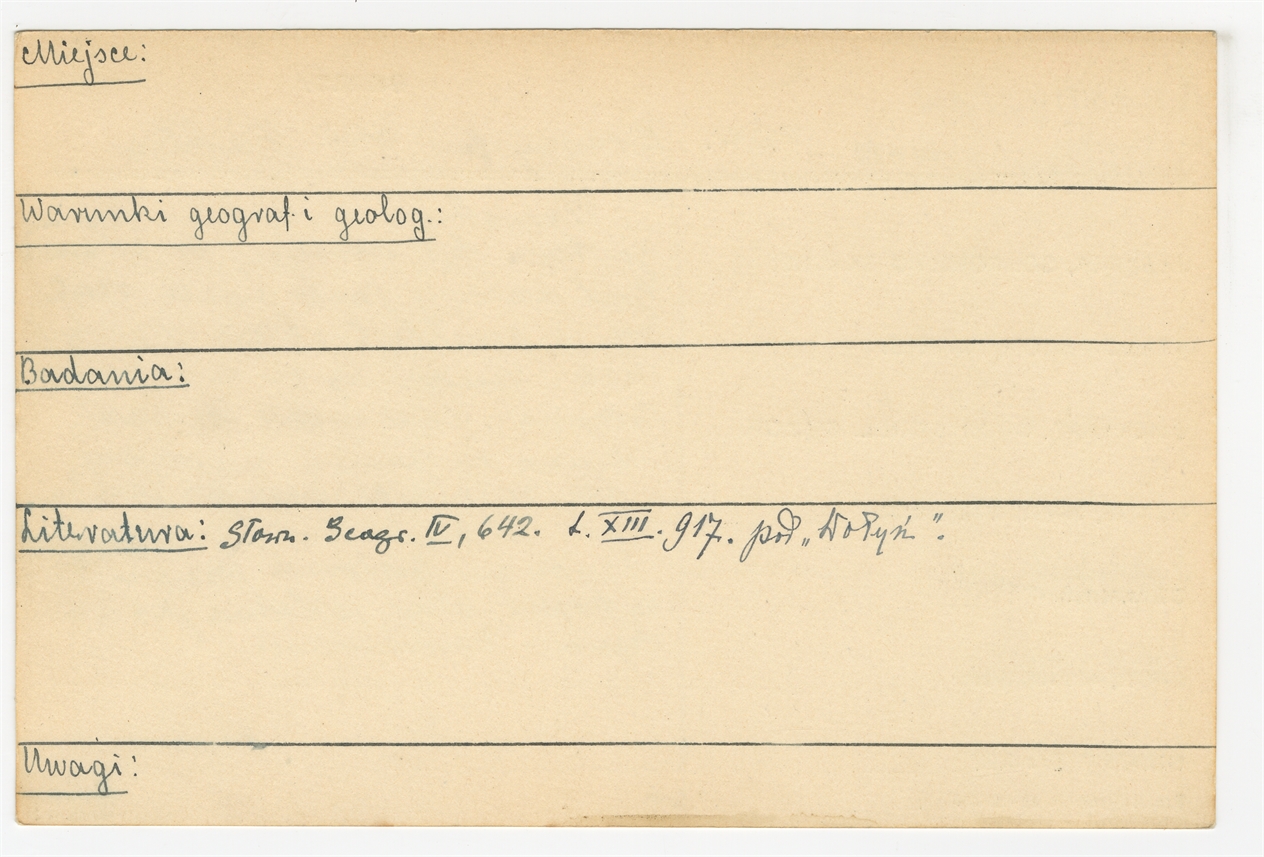 Miejsce:
Warunki geograf. i geolog.:
Badania:
Literatura: Słown. Geogr. IV, 642. t. XIII. 917. pod „Wołyń”.
Uwagi: